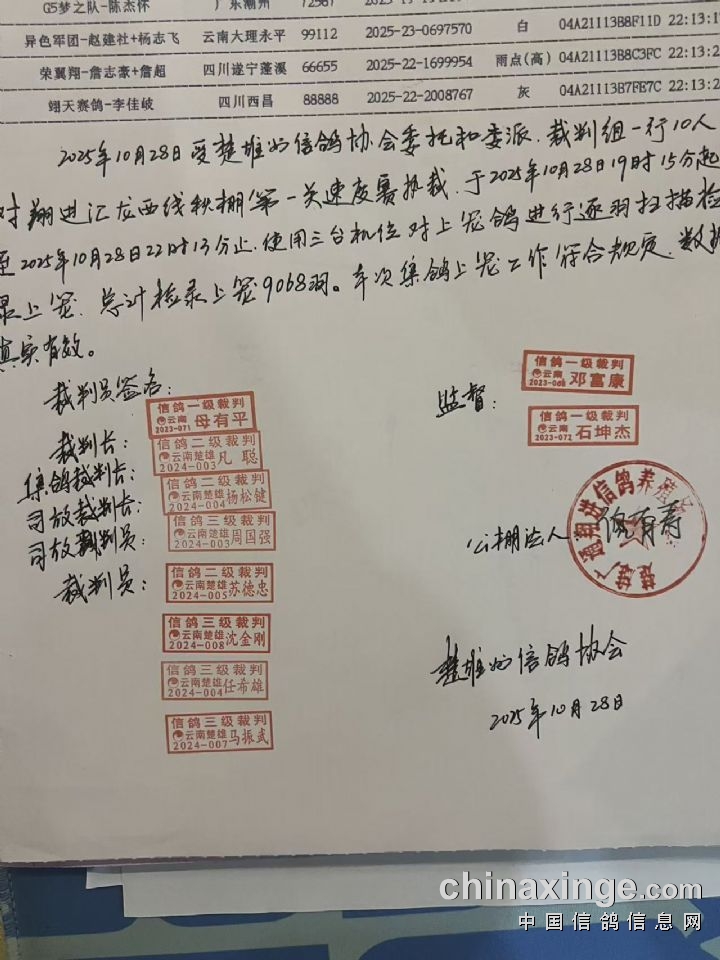 G5梦之队-陈杰怀 广东潮州 72567
异色军团-赵建社+杨志飞 云南大理永平 99112 2025-23-0697570 白 04A21113B8F11D 22:13:1
荣翼翔-詹志豪+詹超 四川遂宁蓬溪 66655 2025-22-1699954 雨点(高) 04A21113B8C3FC 22:13:2
翊天赛鸽-李佳岐 四川西昌 88888 2025-22-2008767 灰 04A21113B7FE7C 22:13:2
2025年10月28日受楚雄州信鸽协会委托和委派,裁判组一行10人
对翔进汇龙西线秋棚第一关速度赛执裁,于2025年10月28日19时15分起
至2025年10月28日22时13分止,使用三台机位对上笼鸽进行逐羽扫描检
录上笼,总计检录上笼9068羽。本次集鸽上笼工作符合规定,数据
真实有效。
裁判员签名:
监督:
信鸽一级裁判
云南 邓富康
2023-068
信鸽一级裁判
云南 石坤杰
2023-072
裁判长:
信鸽一级裁判
云南 母有平
2023-071
集鸽裁判长:
信鸽二级裁判
云南楚雄 凡聪
2024-003
司放裁判长:
信鸽二级裁判
云南楚雄 杨松键
2024-004
司放裁判员:
信鸽三级裁判
云南楚雄 周国强
2024-003
公棚法人:
翔进信鸽养殖
裁判员:
信鸽二级裁判
云南楚雄 苏德忠
2024-005
信鸽二级裁判
云南楚雄 沈金刚
2024-008
信鸽三级裁判
云南楚雄 任希雄
2024-004
信鸽三级裁判
云南楚雄 马振武
2024-007
楚雄州信鸽协会
2025年10月28日
chinaxinge.com
中国信鸽信息网